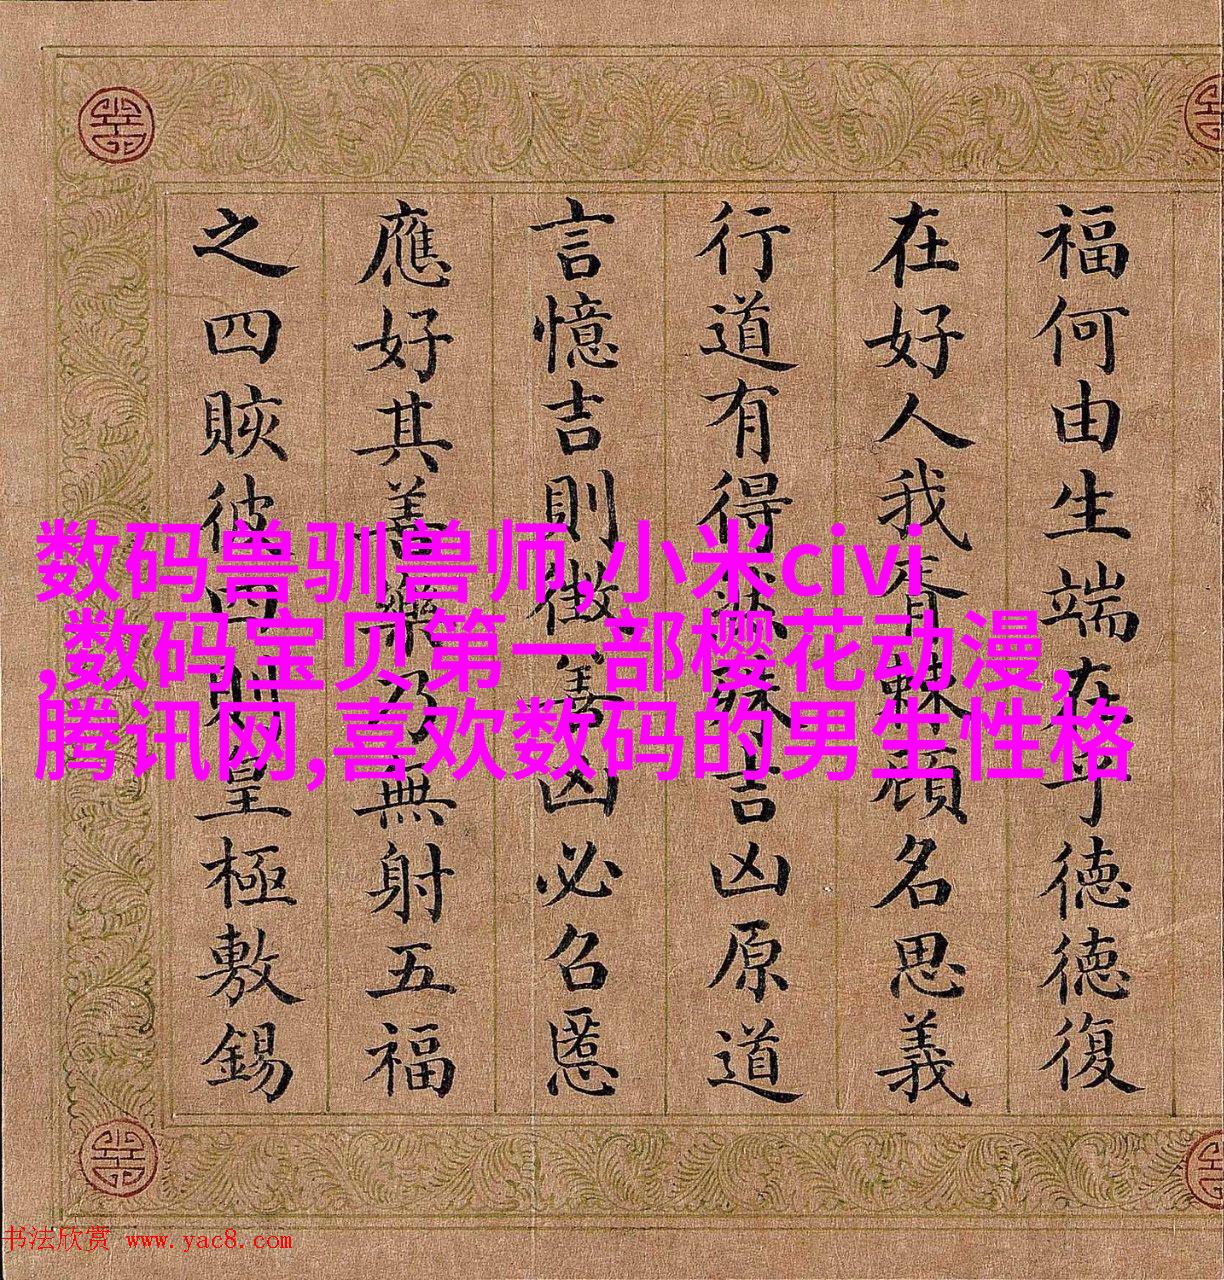 福何由生端在乎德德復
在好人我顧名思義
行道有得殊吉凶原道
言憶吉則徵善凶必召慝
應好其善樂乃無射五福
之四賅彼四則皇極敷錫
数码兽驯兽师,小米civi
,数码宝贝第一部樱花动漫,
腾讯网,喜欢数码的男生性格
书法欣赏 www.yac8.com